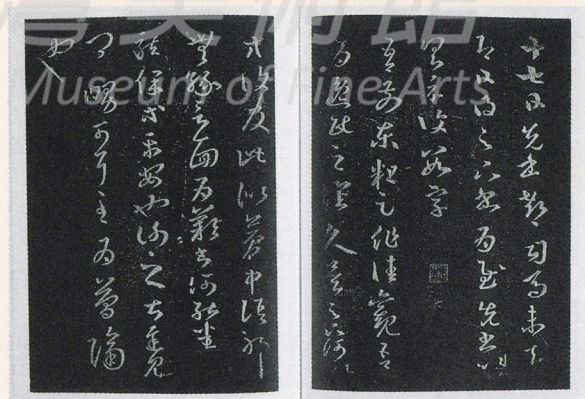 美術館
Museum of Fine Arts
十七日先書郗司馬未去
即日得足下書為慰先書以
具示復數字
吾前東粗足作佳觀吾
為逸民之懷久矣足下何以
等復及此似夢中語耶
無緣言面為歎書何能悉
龍保等平安也謝之甚遲見
卿舅可耳至為簡隔
也